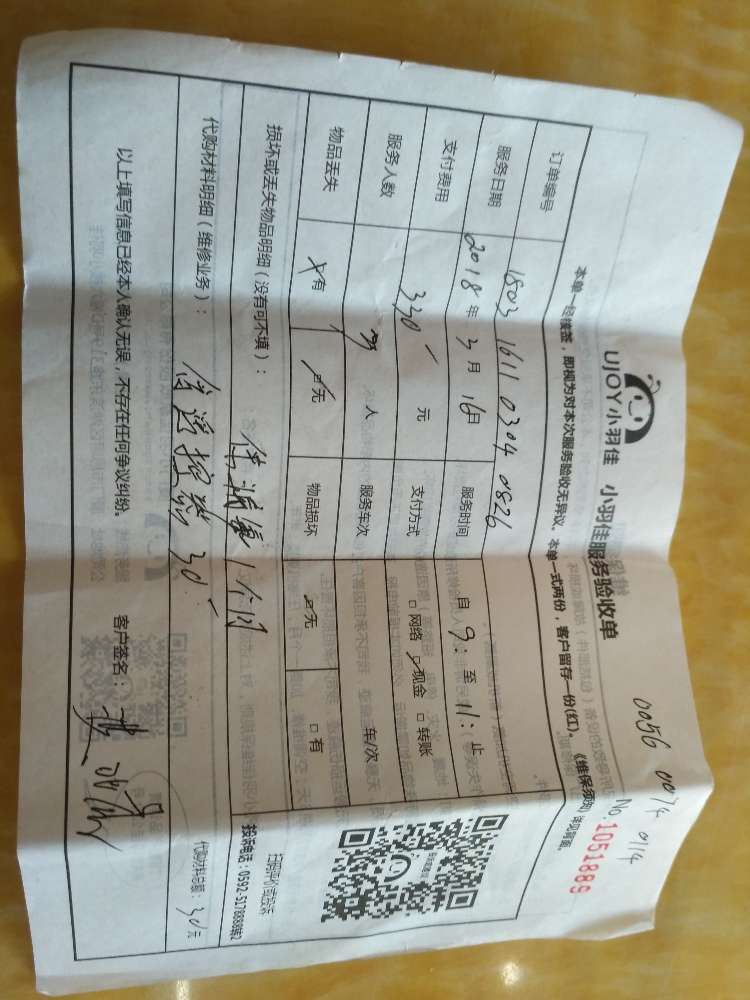 0056 0074 0114
UJOY小羽佳 小羽佳服务验收单 No.1051889
本单一经接签，即视为对本次服务验收无异议。本单一式两份，客户留存一份(红)。《维保须知》详见背面。
订单编号 1803 1611 0304 0826
服务日期 2018年3月16日 服务时间 自9:至11:止
支付费用 330元 支付方式 □网络 现金 □转账
服务人数 人 服务车次 车/次
物品丢失 有 无 物品损坏 无 □有
损坏或丢失物品明细（没有可不填）： 1个月
扫码评价或投诉
投诉电话：0592-5178888转2
代购材料明细（维修业务）： 遥控器 30
代购材料总额：30元
以上填写信息已经本人确认无误，不存在任何争议纠纷。 客户签名：